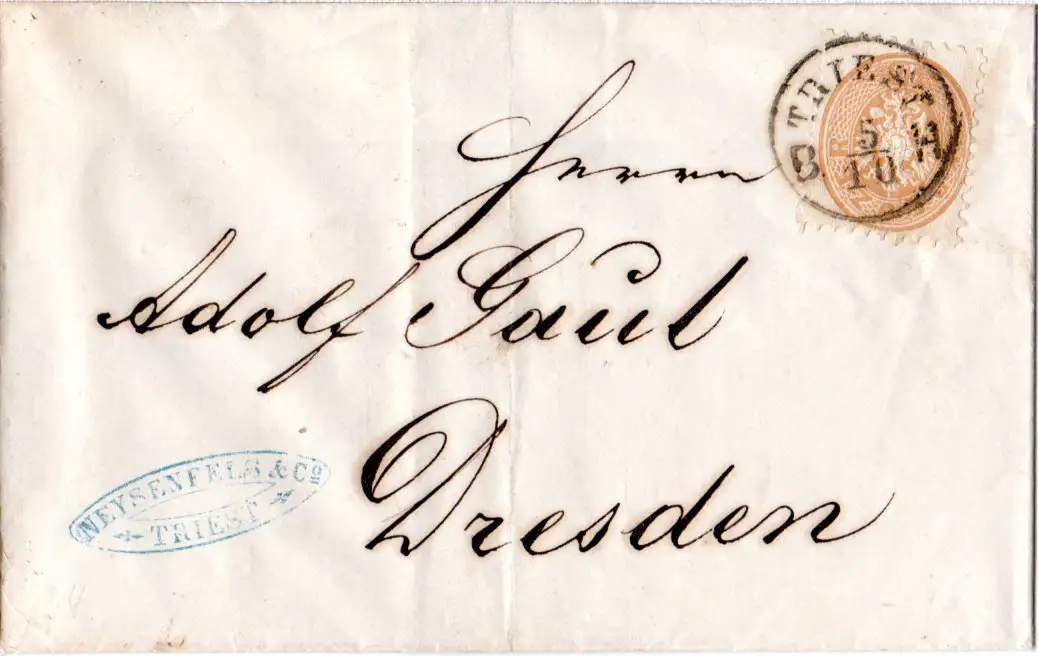 TRIEST
5
10
Herrn
Adolf Gaul
Dresden
WEYSENFELS & Cº
TRIEST